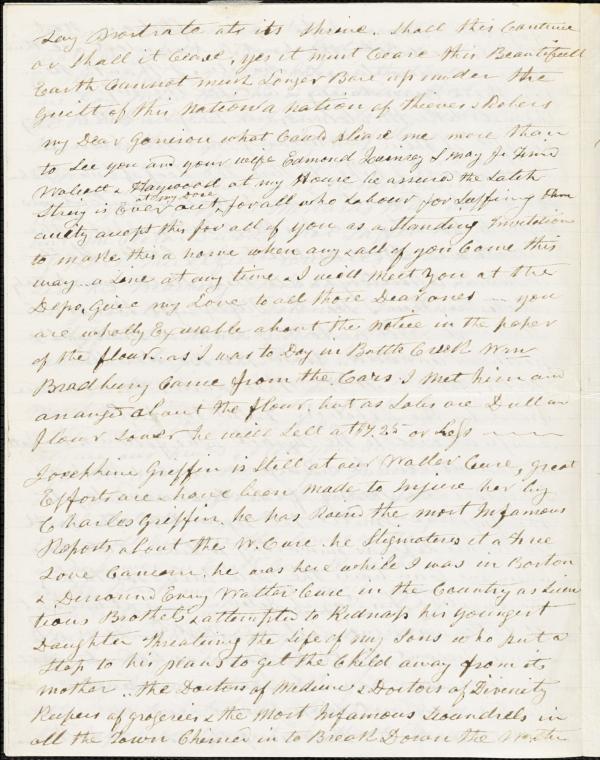 Lay Prostrate ats its Shrine. Shall this Continue
or Shall it Cease, yes it must Cease this Beautifull
Earth Cannot much Longer Bare up under the
Guilt of this Nation a nation of Thieves & Robers
my Dear Garrison what Could please me more than
to See you and your wife Edmond Quinsey S May Jr
Walcutt & Haywood at my House be assured the Latch
at my Dore
String is Ever out for all who Labour for Suffring
accept this for all of you as a Standing Invitation
to make this a home when any & all of you Come this
way. a Line at any time & I will meet you at the
Depo, Give my Love to all those Dear ones — you
are wholly Exusable about the notice in the paper
of the flour. as I was to Day in Battle Creek Wm
Bradbury Came from the Cars I Met him and
arranged about the flour. but as Sales are Dull an
flour Lower he will Sell at $7.25 or Less
Josephine Greffin is Still at our Watter Cure, great
Efforts are & have been made to Injure her by
Charles Griffin. he has Raised the most Infamous
Reports about the W. Cure. he Stigmatises it a free
Love Concern. he was here while I was in Boston
& Denound Evry Watter Cure in the Country as Licen
tious Brothels & attempted to Kidnap his youngest
Daughter Threatning the Life of my Sons who put a
Stop to his plans to get the Child away from its
mother. the Doctors of Medicine & Doctors of Divinity
Keepers of grogeries & the Most Infamous Scoundrels in
all the Town Chimed in to Break Down the Watter